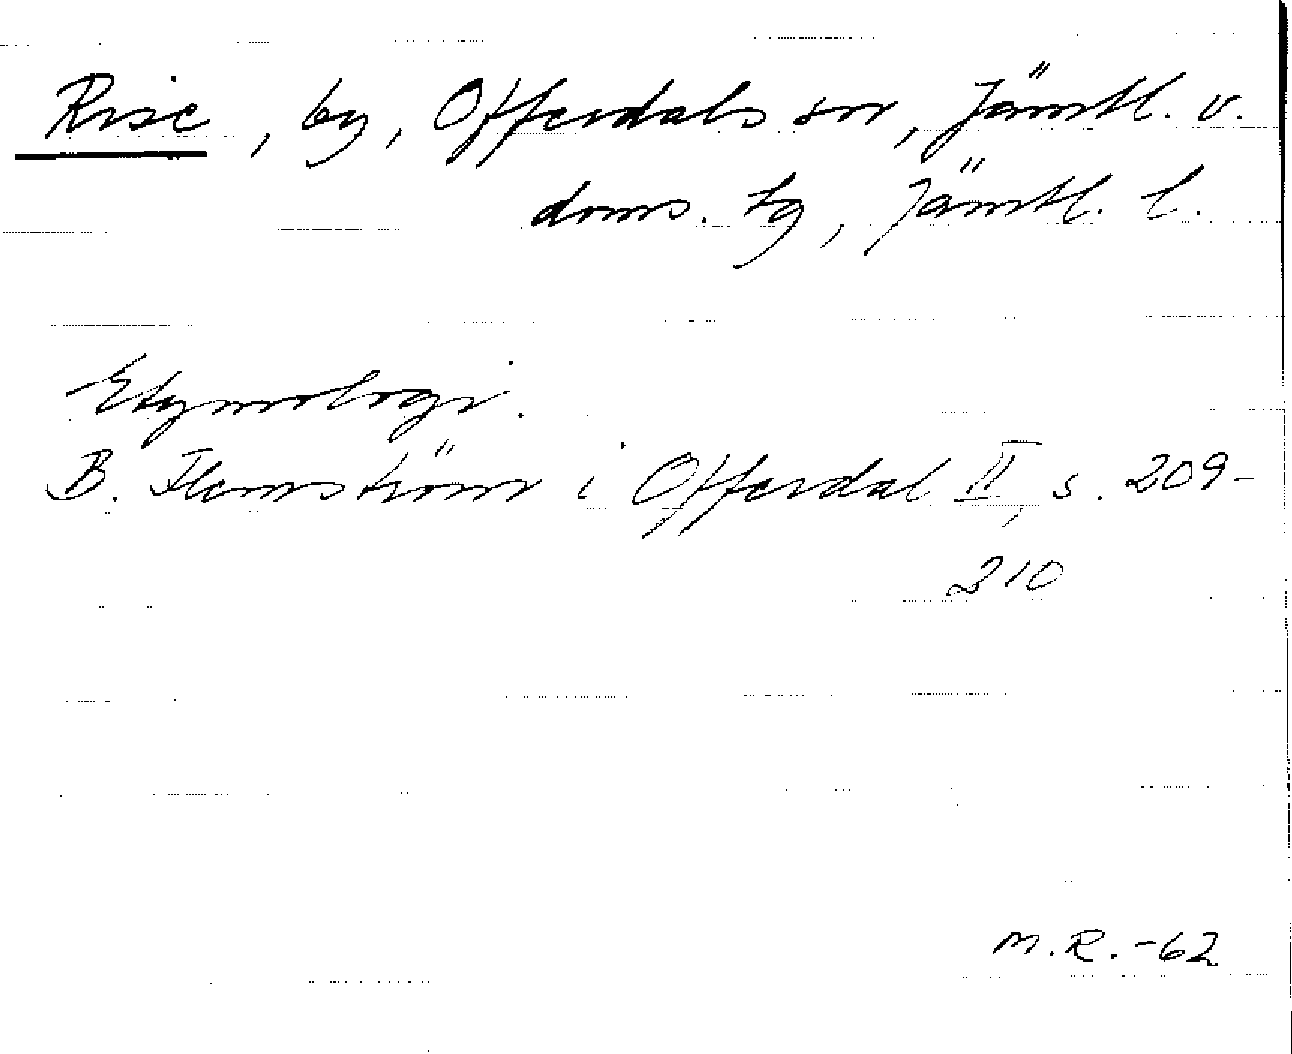 Rise, by, Offerdals sn, Jämtl. v.
doms. tg, Jämtl. l.
Etymologi.
B. Flemström i Offerdal II, s. 209-
210
M.R.-62